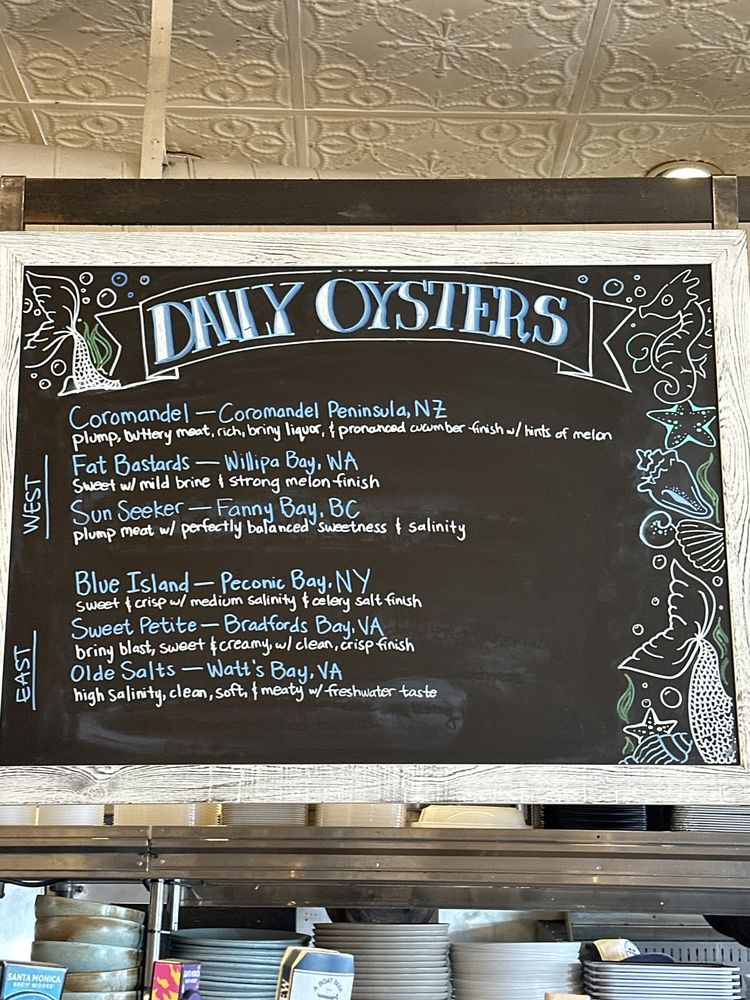 DAILY OYSTERS
WEST
Coromandel — Coromandel Peninsula, NZ
plump, buttery meat, rich, briny liquor, & pronounced cucumber finish w/ hints of melon
Fat Bastards — Willipa Bay, WA
Sweet w/ mild brine & strong melon finish
Sun Seeker — Fanny Bay, BC
plump meat w/ perfectly balanced sweetness & salinity
EAST
Blue Island — Peconic Bay, NY
sweet & crisp w/ medium salinity & celery salt finish
Sweet Petite — Bradfords Bay, VA
briny blast, sweet & creamy, w/ clean, crisp finish
Olde Salts — Watt's Bay, VA
high salinity, clean, soft, & meaty w/ freshwater taste
SANTA MONICA
BREW WORKS